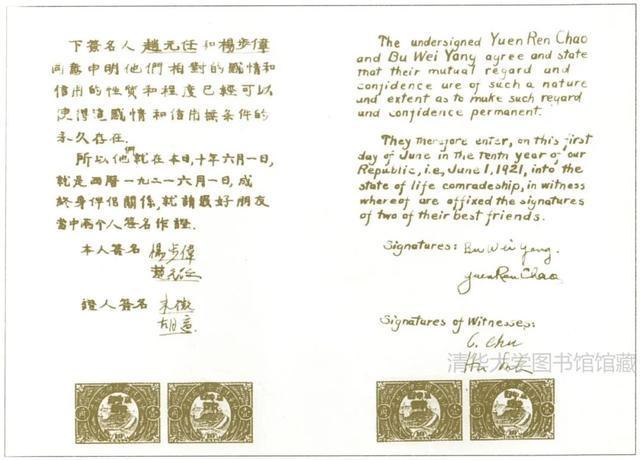 下簽名人 趙元任和楊步偉
同意申明他們相對的感情和
信用的性質和程度已經可以
使得這感情和信用無條件的
永久存在.
所以他們就在本日,十年六月一日,
就是西曆一九二一六月一日,成
終身伴侶關係,就請最好朋友
當中兩个人簽名作證.
本人簽名 楊步偉
趙元任
證人簽名 朱徵
胡適
The undersigned Yuen Ren Chao
and Bu Wei Yang agree and state
that their mutual regard and
confidence are of such a nature
and extent as to make such regard
and confidence permanent.
They therefore enter, on this first
day of June in the tenth year of our
Republic, i.e, June 1, 1921, into the
state of life comradeship, in witness
whereof are affixed the signatures
of two of their best friends.
Signatures: Bu Wei Yang.
Yuen Ren Chao
Signatures of Witnesses:
C. Chu
Hu
清华大学图书馆馆藏